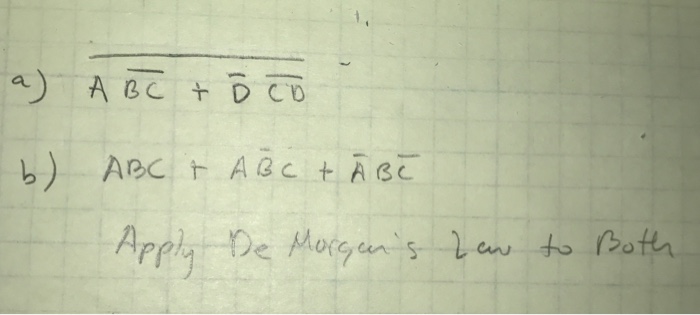 a) \overline{A \overline{BC} + \overline{D} \overline{CD}}
b) ABC + A\overline{B}C + \overline{A}B\overline{C}
Apply De Morgan's Law to Both